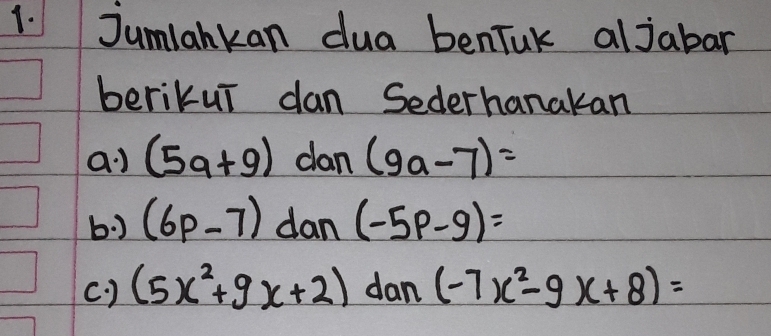 1. Jumlahkan dua bentuk aljabar
berikut dan Sederhanakan
a.) (5a+9) dan (9a-7)=
b.) (6p-7) dan (-5p-9)=
c.) (5x²+9x+2) dan (-7x²-9x+8)=